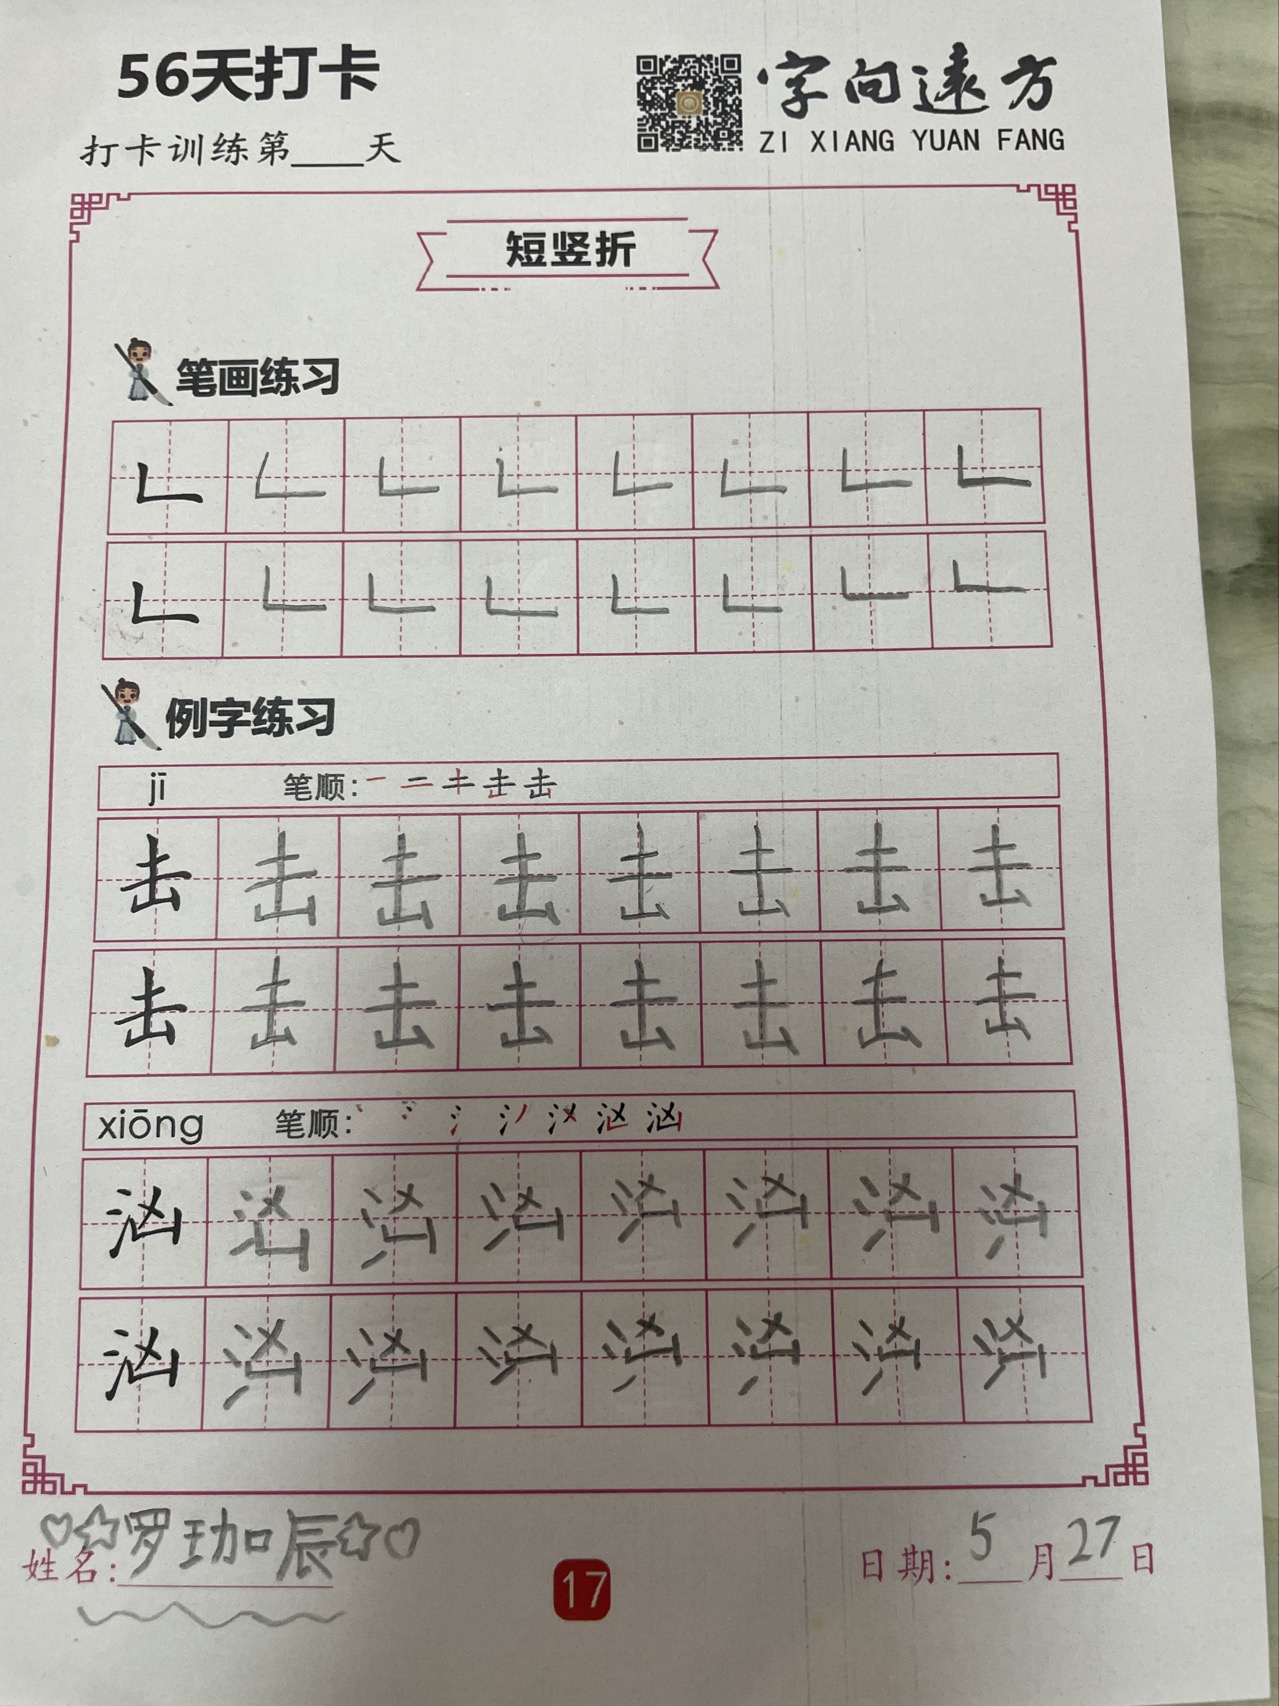 56天打卡
字向遠方
打卡训练第____天
ZI XIANG YUAN FANG
短竖折
笔画练习
𠃊 𠃊 𠃊 𠃊 𠃊 𠃊 𠃊 𠃊
𠃊 𠃊 𠃊 𠃊 𠃊 𠃊 𠃊 𠃊
例字练习
jī 笔顺: 一 二 キ 击 击
击 击 击 击 击 击 击 击
击 击 击 击 击 击 击 击
xiōng 笔顺:
汹 汹 汹 汹 汹 汹 汹 汹
汹 汹 汹 汹 汹 汹 汹 汹
姓名:罗珈辰
17
日期:5月27日